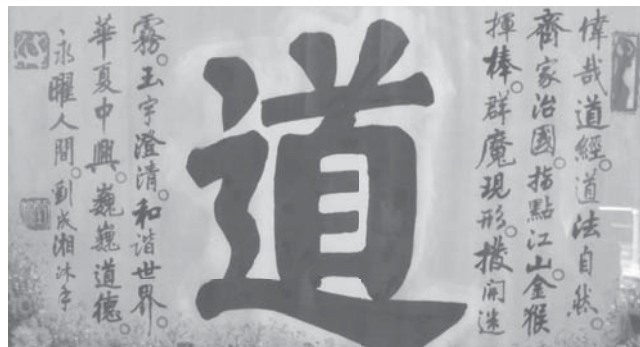 偉哉道經。道法自然。
齊家治國。指點江山。金猴
揮棒。群魔現形。撥開迷
道
霧。玉宇澄清。和諧世界。
華夏中興。巍巍道德。
永曜人間。劉成湘沐手